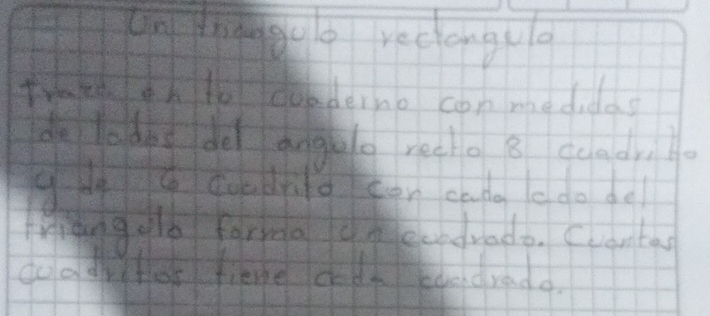 Un triangulo rectangulo
traza en tu cuaderno con medidas
de lados del angulo recto 8 cuadrito
y de 6 cuadrito con cada lado del
triangulo forma un cuadrado. Cuantas
cuadritos tiene cada cuadrado.